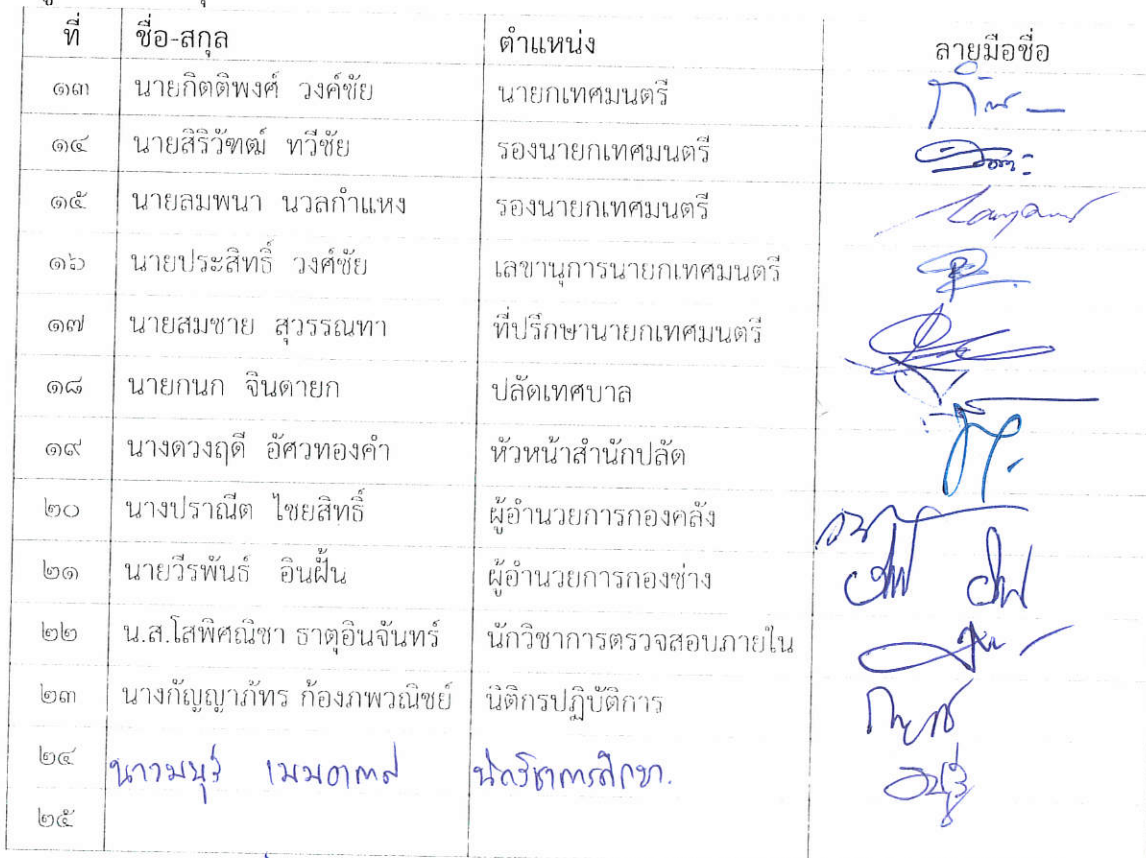 ที่ ชื่อ-สกุล ตำแหน่ง ลายมือชื่อ
๑๓ นายกิตติพงศ์ วงค์ชัย นายกเทศมนตรี
๑๔ นายสิริวัฑฒ์ ทวีชัย รองนายกเทศมนตรี
๑๕ นายลมพนา นวลกำแหง รองนายกเทศมนตรี
๑๖ นายประสิทธิ์ วงศ์ชัย เลขานุการนายกเทศมนตรี
๑๗ นายสมชาย สุวรรณทา ที่ปรึกษานายกเทศมนตรี
๑๘ นายกนก จินดายก ปลัดเทศบาล
๑๙ นางดวงฤดี อัศวทองคำ หัวหน้าสำนักปลัด
๒๐ นางปราณีต ไชยสิทธิ์ ผู้อำนวยการกองคลัง
๒๑ นายวีรพันธ์ อินฝั้น ผู้อำนวยการกองช่าง
๒๒ น.ส.โสพิศณิชา ธาตุอินจันทร์ นักวิชาการตรวจสอบภายใน
๒๓ นางกัญญาภัทร ก้องภพวณิชย์ นิติกรปฏิบัติการ
๒๔ นักวิชาการศึกษา.
๒๕